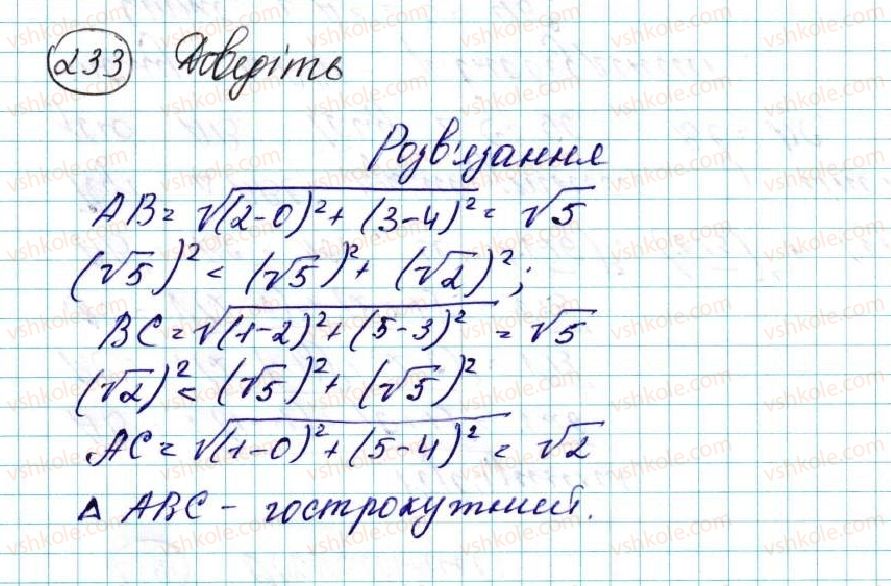 233 Доведіть
Розв'язання
AB = √((2-0)² + (3-4)²) = √5
(√5)² < (√5)² + (√2)²;
BC = √((1-2)² + (5-3)²) = √5
(√2)² < (√5)² + (√5)²
AC = √((1-0)² + (5-4)²) = √2
Δ ABC - гострокутний.